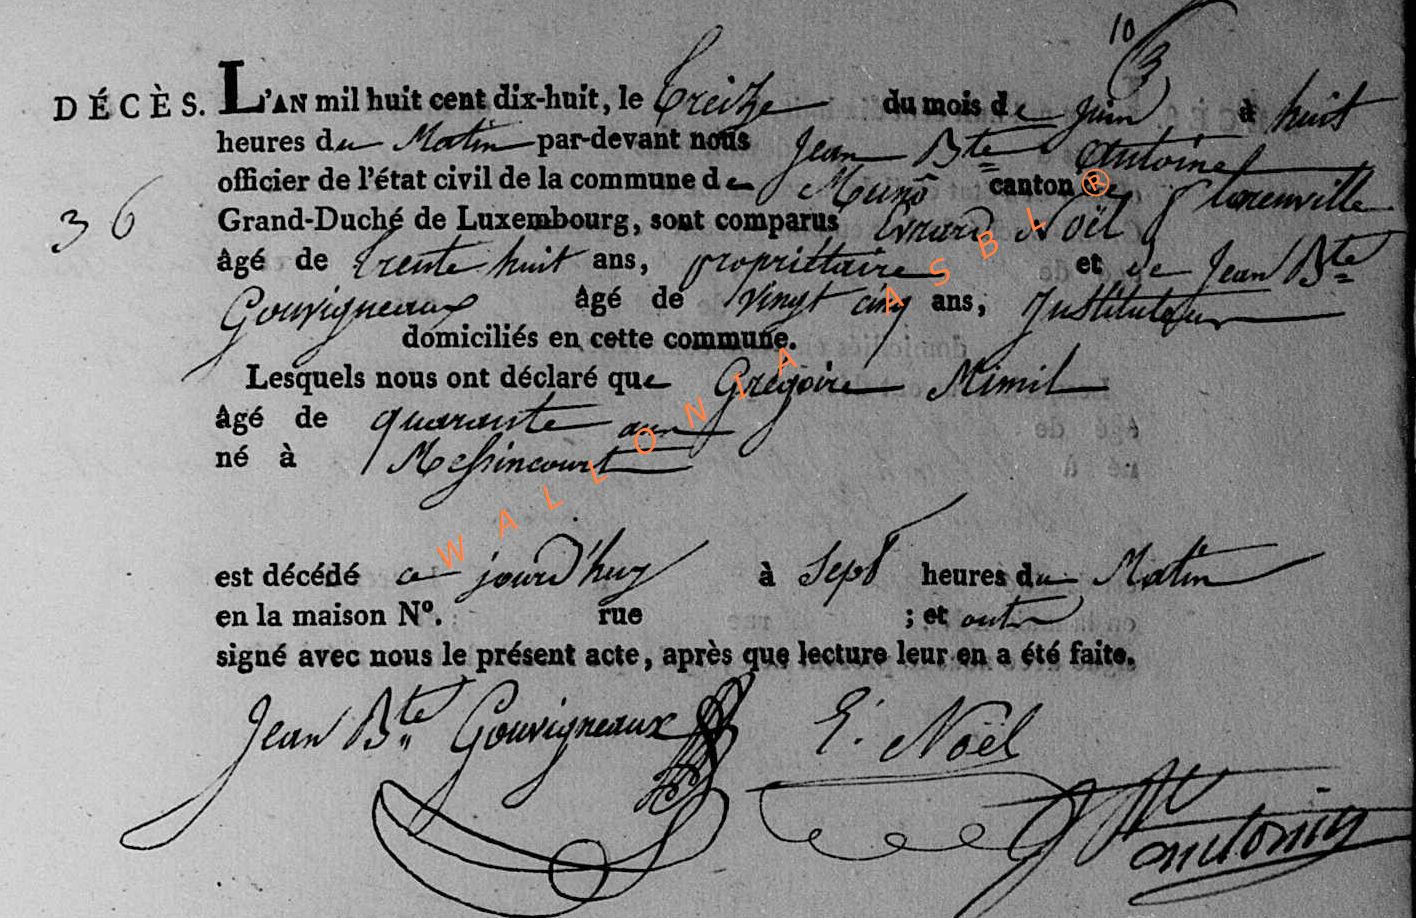 10
3
DÉCÈS. L'AN mil huit cent dix-huit, le treize du mois de juin à huit
heures du Matin par-devant nous Jean Bte Antoine
officier de l'état civil de la commune de Muno canton de florenville
36
Grand-Duché de Luxembourg, sont comparus Evrard Noël
âgé de trente huit ans, propriettaire et de Jean Bte
Gouvigneaux âgé de vingt cinq ans, Instituteur
domiciliés en cette commune.
Lesquels nous ont déclaré que Grégoire Mimil
âgé de quarante ans
né à Messincourt
est décédé ce jourd'huy à Sept heures du Matin
en la maison N°. rue ; et ont
signé avec nous le présent acte, après que lecture leur en a été faite.
Jean Bte Gouvigneaux E. Noël
antoine
WALLONIA ASBL ®